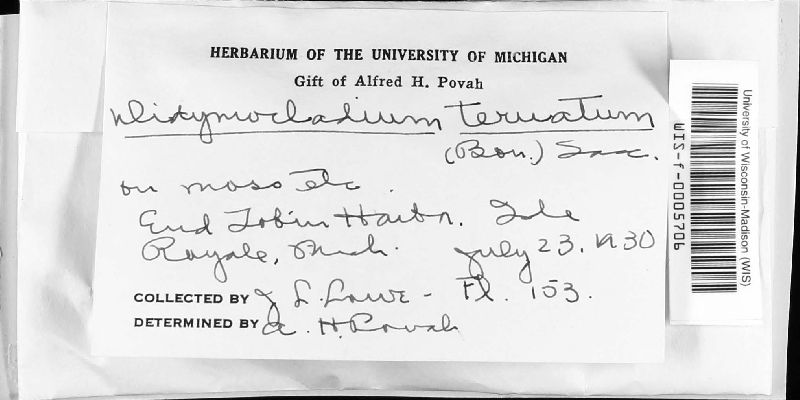 HERBARIUM OF THE UNIVERSITY OF MICHIGAN
Gift of Alfred H. Povah
Didymocladium ternatum
(Bon.) Sacc.
on moss etc.
End Tobin Harbor. Isle
Royale, Mich. July 23. 1930
COLLECTED BY J. L. Lowe - Fl. 153.
DETERMINED BY A. H. Povah
University of Wisconsin-Madison (WIS)
WIS-f-0005706